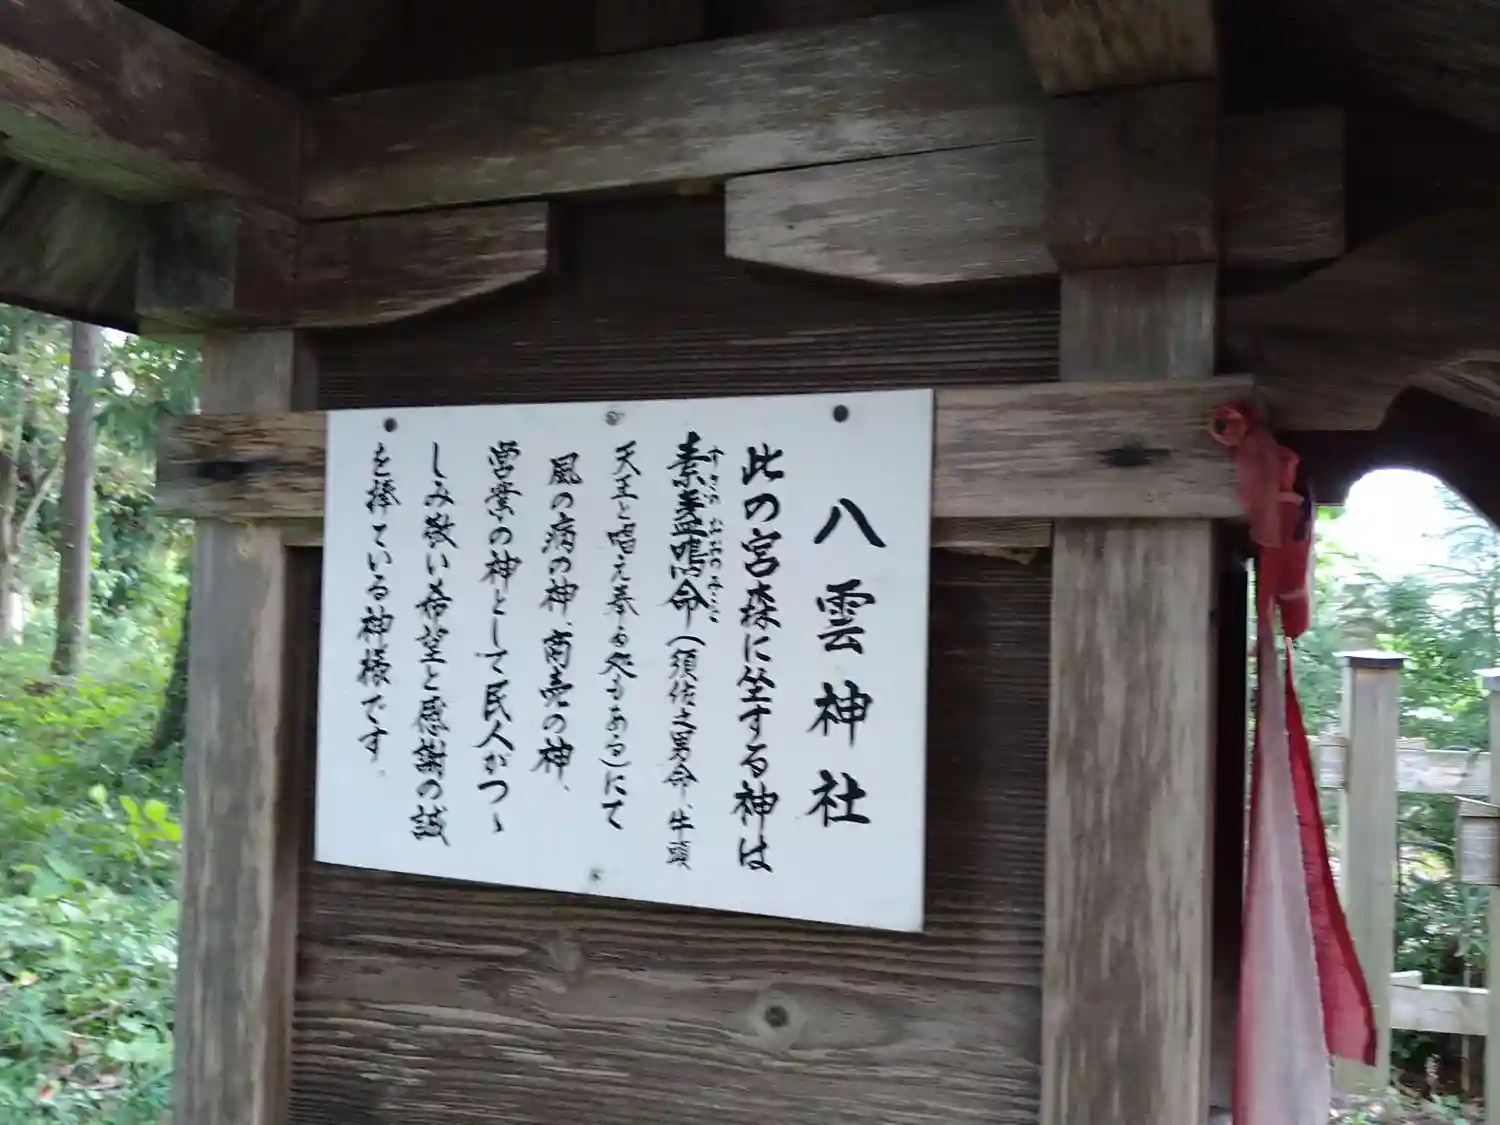 八雲神社
此の宮森に坐する神は
素盞鳴命(須佐之男命、牛頭
すさの おおのみこと
天王と唱え奉る処もある)にて
風の病の神、商売の神、
営業の神として民人がつゝ
しみ敬い希望と感謝の誠
を捧ている神様です。